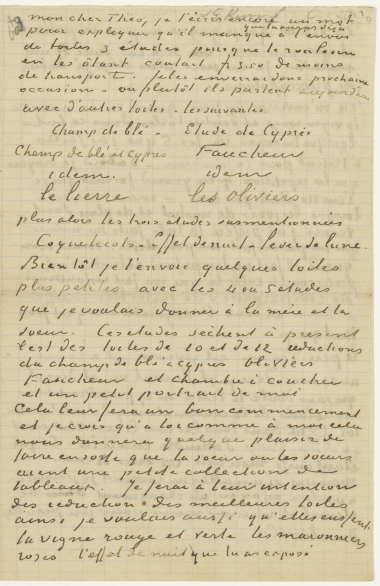 mon cher Theo, je t'écris encore un mot
que tu auras déjà
pour expliquer qu'il manque à l'envoi
de toiles 3 études puisque le rouleau
en les ôtant coutait f 3.50 de moins
de transport. Je les enverrai donc prochaine
occasion – ou plutôt ils partent aujourd'hui
avec d'autres toiles – les suivantes
Champ de blé – Etude de Cyprès
Champ de blé et cyprès Faucheur
idem. idem
le lierre les oliviers
plus alors les trois études susmentionnées
Coquelicots – Effet de nuit – lever de lune.
Bientôt je t'envoie quelques toiles
plus petites avec les 4 ou 5 études
que je voulais donner à la mère et la
soeur. Ces etudes sèchent à présent
c'est des toiles de 10 et de 12 reductions
du champ de blé & cyprès Oliviers
Faucheur et chambre à coucher
et un petit portrait de moi
Cela leur fera un bon commencement
et je crois qu'à toi comme à moi cela
nous donnera quelque plaisir de
faire en sorte que la soeur ou les soeurs
aient une petite collection de
tableaux. Je ferai à leur intention
des réductions des meilleures toiles
ainsi je voulais aussi qu'elles eussent
la vigne rouge et verte les marronniers
roses l'effet de nuit que tu as exposé